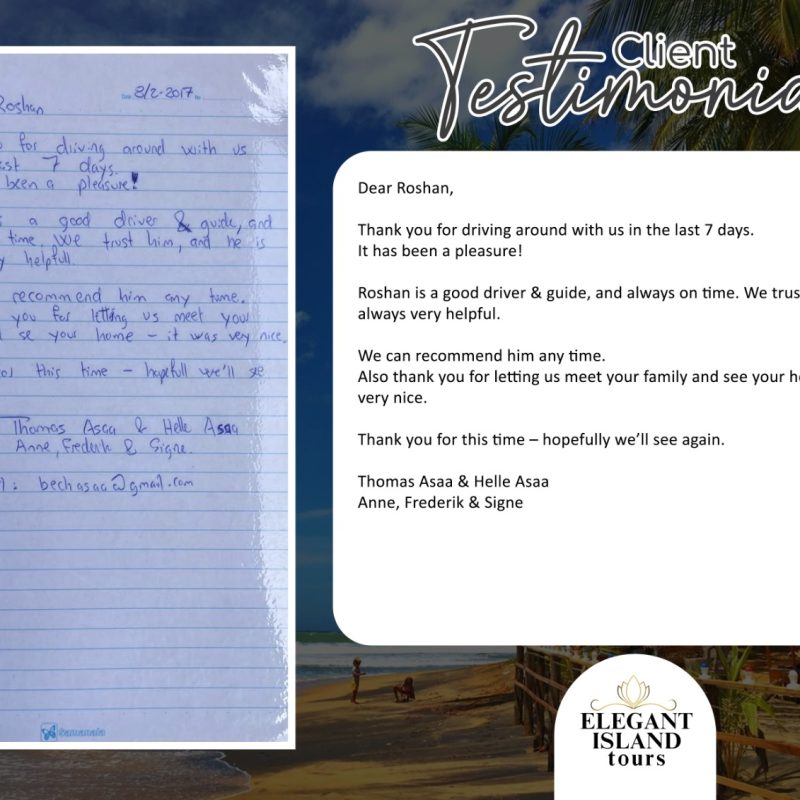 Client
Testimonia
8/2-2017
Roshan
for driving around with us
7 days.
been a pleasure!
a good driver & guide, and
time. We trust him, and he is
helpfull.
recommend him any time.
you for letting us meet your
se your home – it was very nice.
this time – hopefull we'll se
Thomas Asaa & Helle Asaa
Anne, Frederik & Signe.
: bechasaa@gmail.com
Samanala
Dear Roshan,
Thank you for driving around with us in the last 7 days.
It has been a pleasure!
Roshan is a good driver & guide, and always on time. We trus
always very helpful.
We can recommend him any time.
Also thank you for letting us meet your family and see your h
very nice.
Thank you for this time – hopefully we'll see again.
Thomas Asaa & Helle Asaa
Anne, Frederik & Signe
ELEGANT
ISLAND
tours